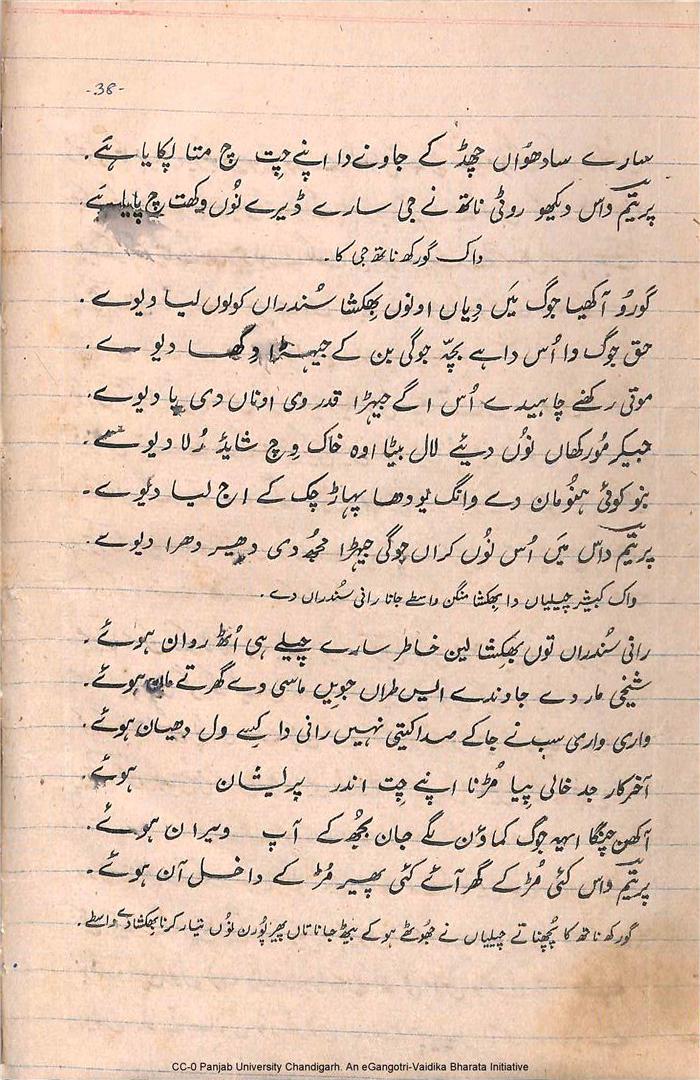 -38-
سارے سادھوُاں چھڈ کے جاونے دا اپنے چِت چ متا پکایا ہَے۔
پریتم داس دیکھو روٹی ناتھ نے جی سارے ڈیرے نُوں وکھت چ پایا ہَے
واک گورکھ ناتھ جی کا۔
گورُو آکھیا جوگ مَیں دِیاں اونوں بھِکشا سُندراں کولوں لیا دیوے۔
حق جوگ دا اُس دا ہے بچہّ جوگی بن کے جیہڑا وکھا دیوے۔
موتی رکھنے چاہیدے اُس اگے جیہڑا قدر وی اوناں دی پا دیوے۔
جیکر مُورکھاں نوُں دیئے لال بیٹا اوہ خاک وِچ شایدٔ رُلا دیوے۔
بنو کوئی ہنوُمان دے وانگ یودھا پہاڑ چک کے اج لیا دیوے۔
پریتم داس مَیں اُس نوُں کراں جوگی جیہڑا مجھُ دی دھیر دھرا دیوے۔
واک کبیشر چیلیاں دا بھکشا منگن واسطے جانا رانی سُندراں دے۔
رانی سُندراں توں بھِکشا لین خاطر سارے چیلے ہی اُٹھ روان ہوئے۔
شیخی ماردے جاوندے ایس طراں جویں ماسی دے گھر تے ہوئے۔
واری واری سب نے جاکے صدا کیتی نہیں رانی دا کِسے ول دھیان ہوئے۔
آخرکار جد خالی پیا مُڑنا اپنے چِت اندر پریشان ہوئے۔
آکھن چنگا ایہہ جوگ کماؤن لگے جان بجھُ کے آپ ویران ہوئے۔
پریتم داس کئی مُڑ کے گھر آئے کئی پھیر مُڑ کے داخل آن ہوئے۔
گورکھ ناتھ کا پُچھنا تے چیلیاں نے جھوُٹھے ہو کے بیٹھ جانا تاں پھر پُورن نوُں تیار کرنا بھکشا دے واسطے۔
CC-0 Panjab University Chandigarh. An eGangotri-Vaidika Bharata Initiative